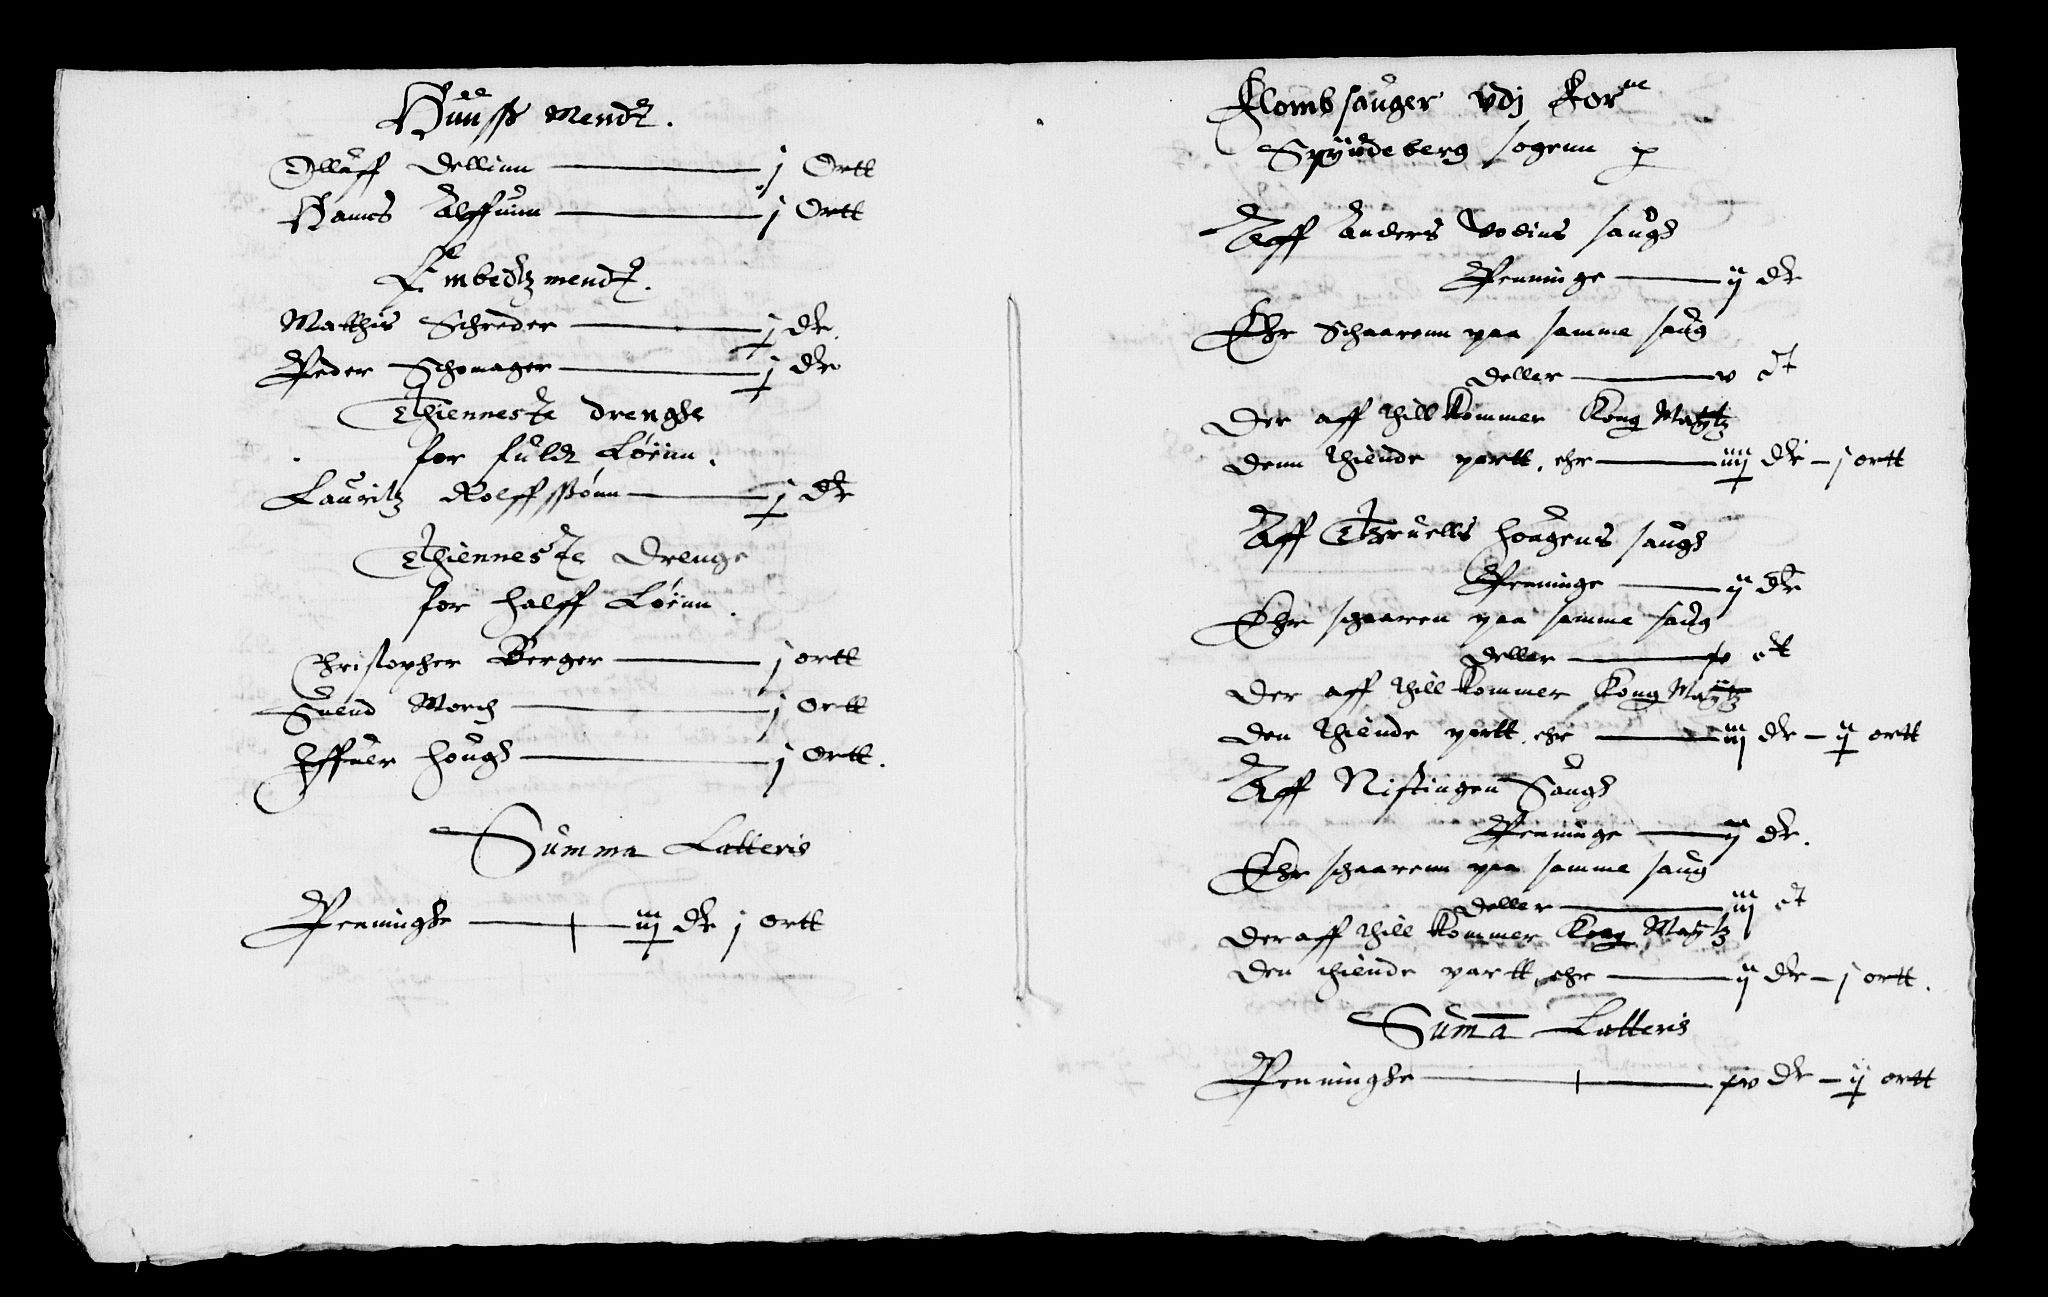 Huuss Mendt.
Olluff Dellinn — j Ortt
Hanns Alffuinn — j Ortt
Embedtzmendt.
Matthis Schreder — j dr.
Peder Schomager — j dr
Thienneste drenghe
for fuldt Løenn.
Lauritz Rolffssønn — j dr
Thienneste Drenge
for halff Løenn.
Christopher Berger — j ortt
Suend Morch — j Ortt
Iffuer Hougs — j Ortt.
Summa Latteris
Penninghe — iiij dr j ortt
Flombsauger vdj
Spyudeberg sogenn
Aff Anders Vodins saugh
Penninge — ij dr
Ehr Schaarenn paa samme saug
Deller — v
Der aff thill kommer Kong Maytz
denn thiende partt, ehr — iiiij dr – j ortt
Aff Thruells Hougens saugh
Penninge — ij dr
Ehr schaaren paa samme saug
Deller
Der aff thill kommer Kong Maytz
den thiende partt, ehr — iiij dr – ij ortt
Aff Nistingen Saugh
Penninge — ij dr.
Ehr schaarenn paa samme saug
Deller — iiij
Der aff thill kommer Kong Maytz
den thiende partt, ehr — ij dr – j ortt.
Suma Latteris
Penninghe — xv dr – ij ortt